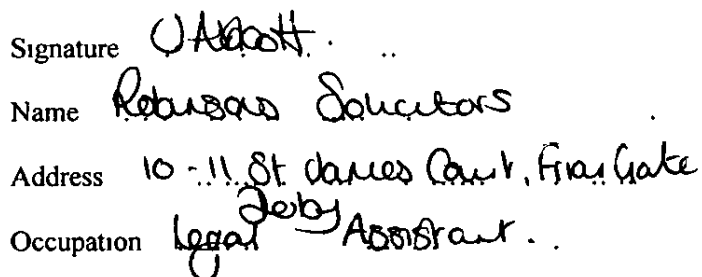 Signature J Abbott
Name Robinsons Solicitors
Address 10 - 11 St James Court, Friar Gate
Derby
Occupation Legal Assistant